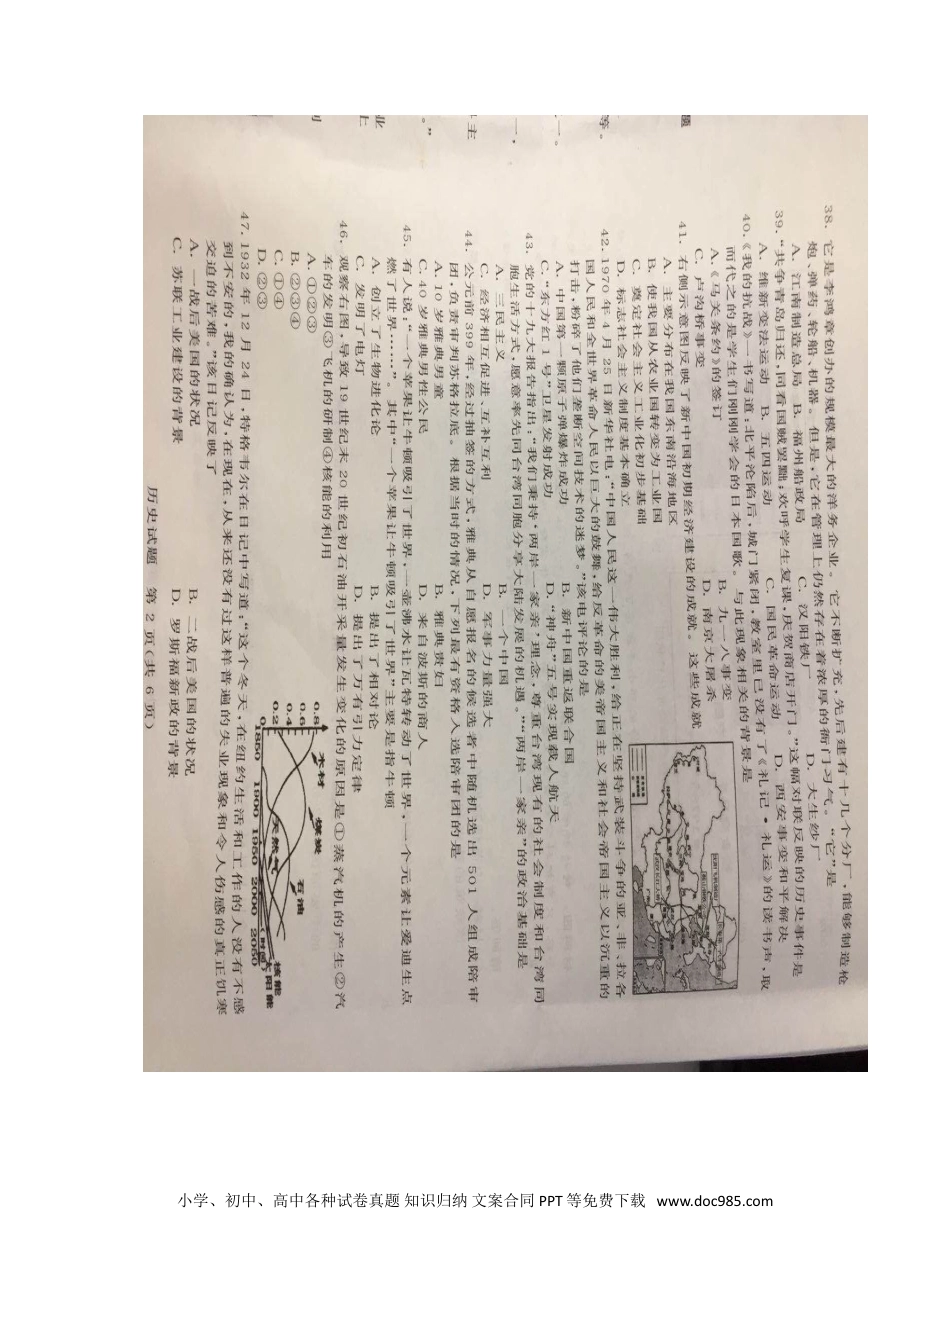 38. 它是李鸿章创办的规模最大的洋务企业。它不断扩充,先后建有十几个分厂,能够制造枪
炮、弹药、轮船、机器。但是,它在管理上仍然存在着浓厚的衙门习气。“它”是
A. 江南制造总局 B. 福州船政局 C. 汉阳铁厂 D. 大生纱厂
39. “共争青岛归还,同看国贼罢黜;欢呼学生复课,庆贺商店开门。”这幅对联反映的历史事件是
A. 维新变法运动 B. 五四运动 C. 国民革命运动 D. 西安事变和平解决
40. 《我的抗战》一书写道:北平沦陷后,城门紧闭,教室里已没有了《礼记·礼运》的读书声,取
而代之的是学生们刚刚学会的日本国歌。与此现象相关的背景是
A. 《马关条约》的签订 B. 九一八事变
C. 卢沟桥事变 D. 南京大屠杀
41. 右侧示意图反映了新中国初期经济建设的成就。这些成就
A. 主要分布在我国东南沿海地区
B. 使我国从农业国转变为工业国
C. 奠定社会主义工业化初步基础
D. 标志社会主义制度基本确立
42. 1970年4月25日新华社电:“中国人民这一伟大胜利,给正在坚持武装斗争的亚、非、拉各
国人民和全世界革命人民以巨大的鼓舞,给反革命的美帝国主义和社会帝国主义以沉重的
打击,粉碎了他们垄断空间技术的迷梦。”该电评论的是
A. 中国第一颗原子弹爆炸成功 B. 新中国重返联合国
C. “东方红1号”卫星发射成功 D. “神舟”五号实现载人航天
43. 党的十九大报告指出:“我们秉持‘两岸一家亲’理念,尊重台湾现有的社会制度和台湾同
胞生活方式,愿意率先同台湾同胞分享大陆发展的机遇。”“两岸一家亲”的政治基础是
A. 三民主义 B. 一个中国
C. 经济相互促进、互补互利 D. 军事力量强大
44. 公元前399年,经过抽签的方式,雅典从自愿报名的候选者中随机选出501人组成陪审
团,负责审判苏格拉底。根据当时的情况,下列最有资格人选陪审团的是
A. 10岁雅典男童 B. 雅典贵妇
C. 40岁雅典男性公民 D. 来自波斯的商人
45. 有人说,“一个苹果让牛顿吸引了世界,一壶沸水让瓦特转动了世界,一个元素让爱迪生点
燃了世界……”。其中“一个苹果让牛顿吸引了世界”主要是指牛顿
A. 创立了生物进化论 B. 提出了相对论
C. 发明了电灯 D. 提出了万有引力定律
46. 观察右图,导致19世纪末20世纪初石油开采量发生变化的原因是①蒸汽机的产生②汽
车的发明③飞机的研制④核能的利用
A. ①②③
B. ②③④
C. ①④
D. ②③
0.8
0.6
0.4
0.2
0
木材
煤炭
石油
天然气
核能
太阳能
1850 1900 1950 2000 2050
47. 1932年12月24日,特格韦尔在日记中写道:“这个冬天,在纽约生活和工作的人没有不感
到不安的,我的确认为,在现在,从来还没有过这样普遍的失业现象和令人伤感的真正饥寒
交迫的苦难。”该日记反映了
A. 一战后美国的状况 B. 二战后美国的状况
C. 苏联工业建设的背景 D. 罗斯福新政的背景
历史试题 第2页(共6页)
小学、初中、高中各种试卷真题 知识归纳 文案合同 PPT 等免费下载 www.doc985.com